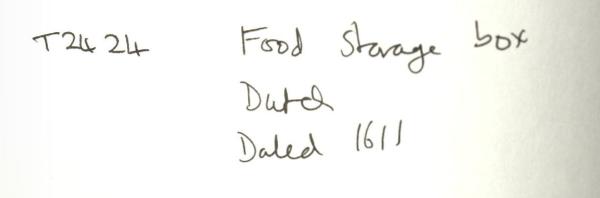 T2424 Food storage box
Dutch
Dated 1611